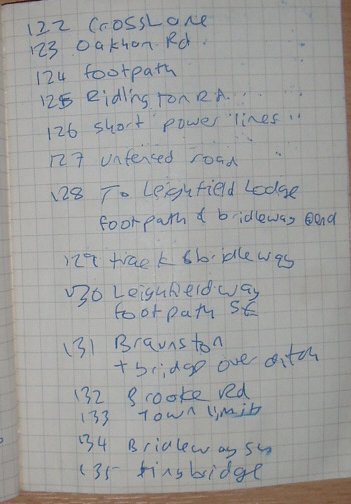 122 Cross Lane
123 Oakham Rd
124 footpath
125 Ridlington Rd
126 short power lines
127 unfenced road
128 To Leighfield Lodge
footpath & bridleway @end
129 track & bridleway
130 Leighfield way
footpath SE
131 Braunston
+ bridge over ditch
132 Brooke Rd
133 Town limit
134 Bridleway
135 tiny bridge